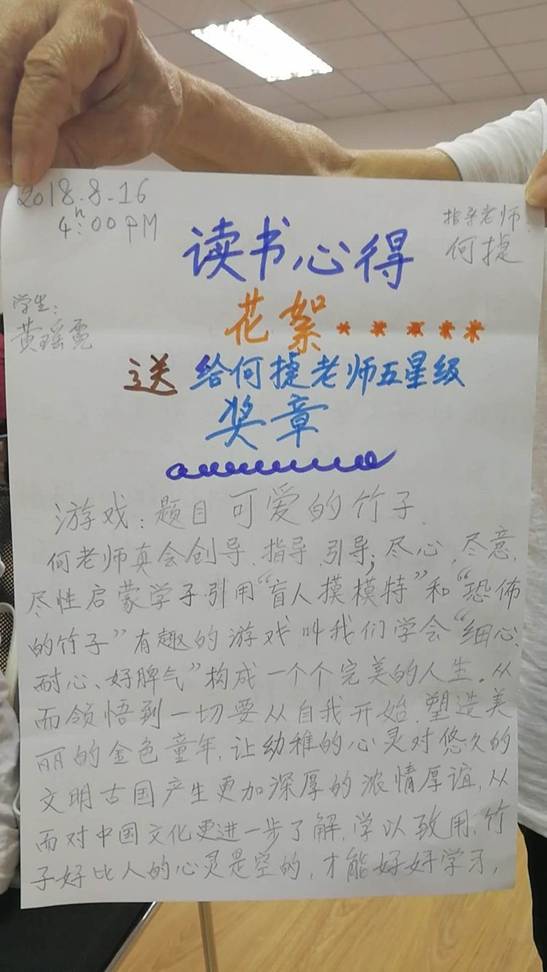 2018.8.16
4h:00PM
指导老师
何捷
读书心得
学生:
黄瑶霓
花絮*****
送给何捷老师五星级
奖章
游戏:题目可爱的竹子.
何老师真会创导、指导、引导;尽心、尽意、
尽性启蒙学子.引用“盲人摸模特”和“恐佈
的竹子”有趣的游戏叫我们学会“细心、
耐心、好脾气”构成一个个完美的人生。从
而领悟到一切要从自我开始,塑造美
丽的金色童年,让幼稚的心灵对悠久的
文明古国产生更加深厚的浓情厚谊,从
而对中国文化更进一步了解,学以致用,竹
子好比人的心灵是空的,才能好好学习,